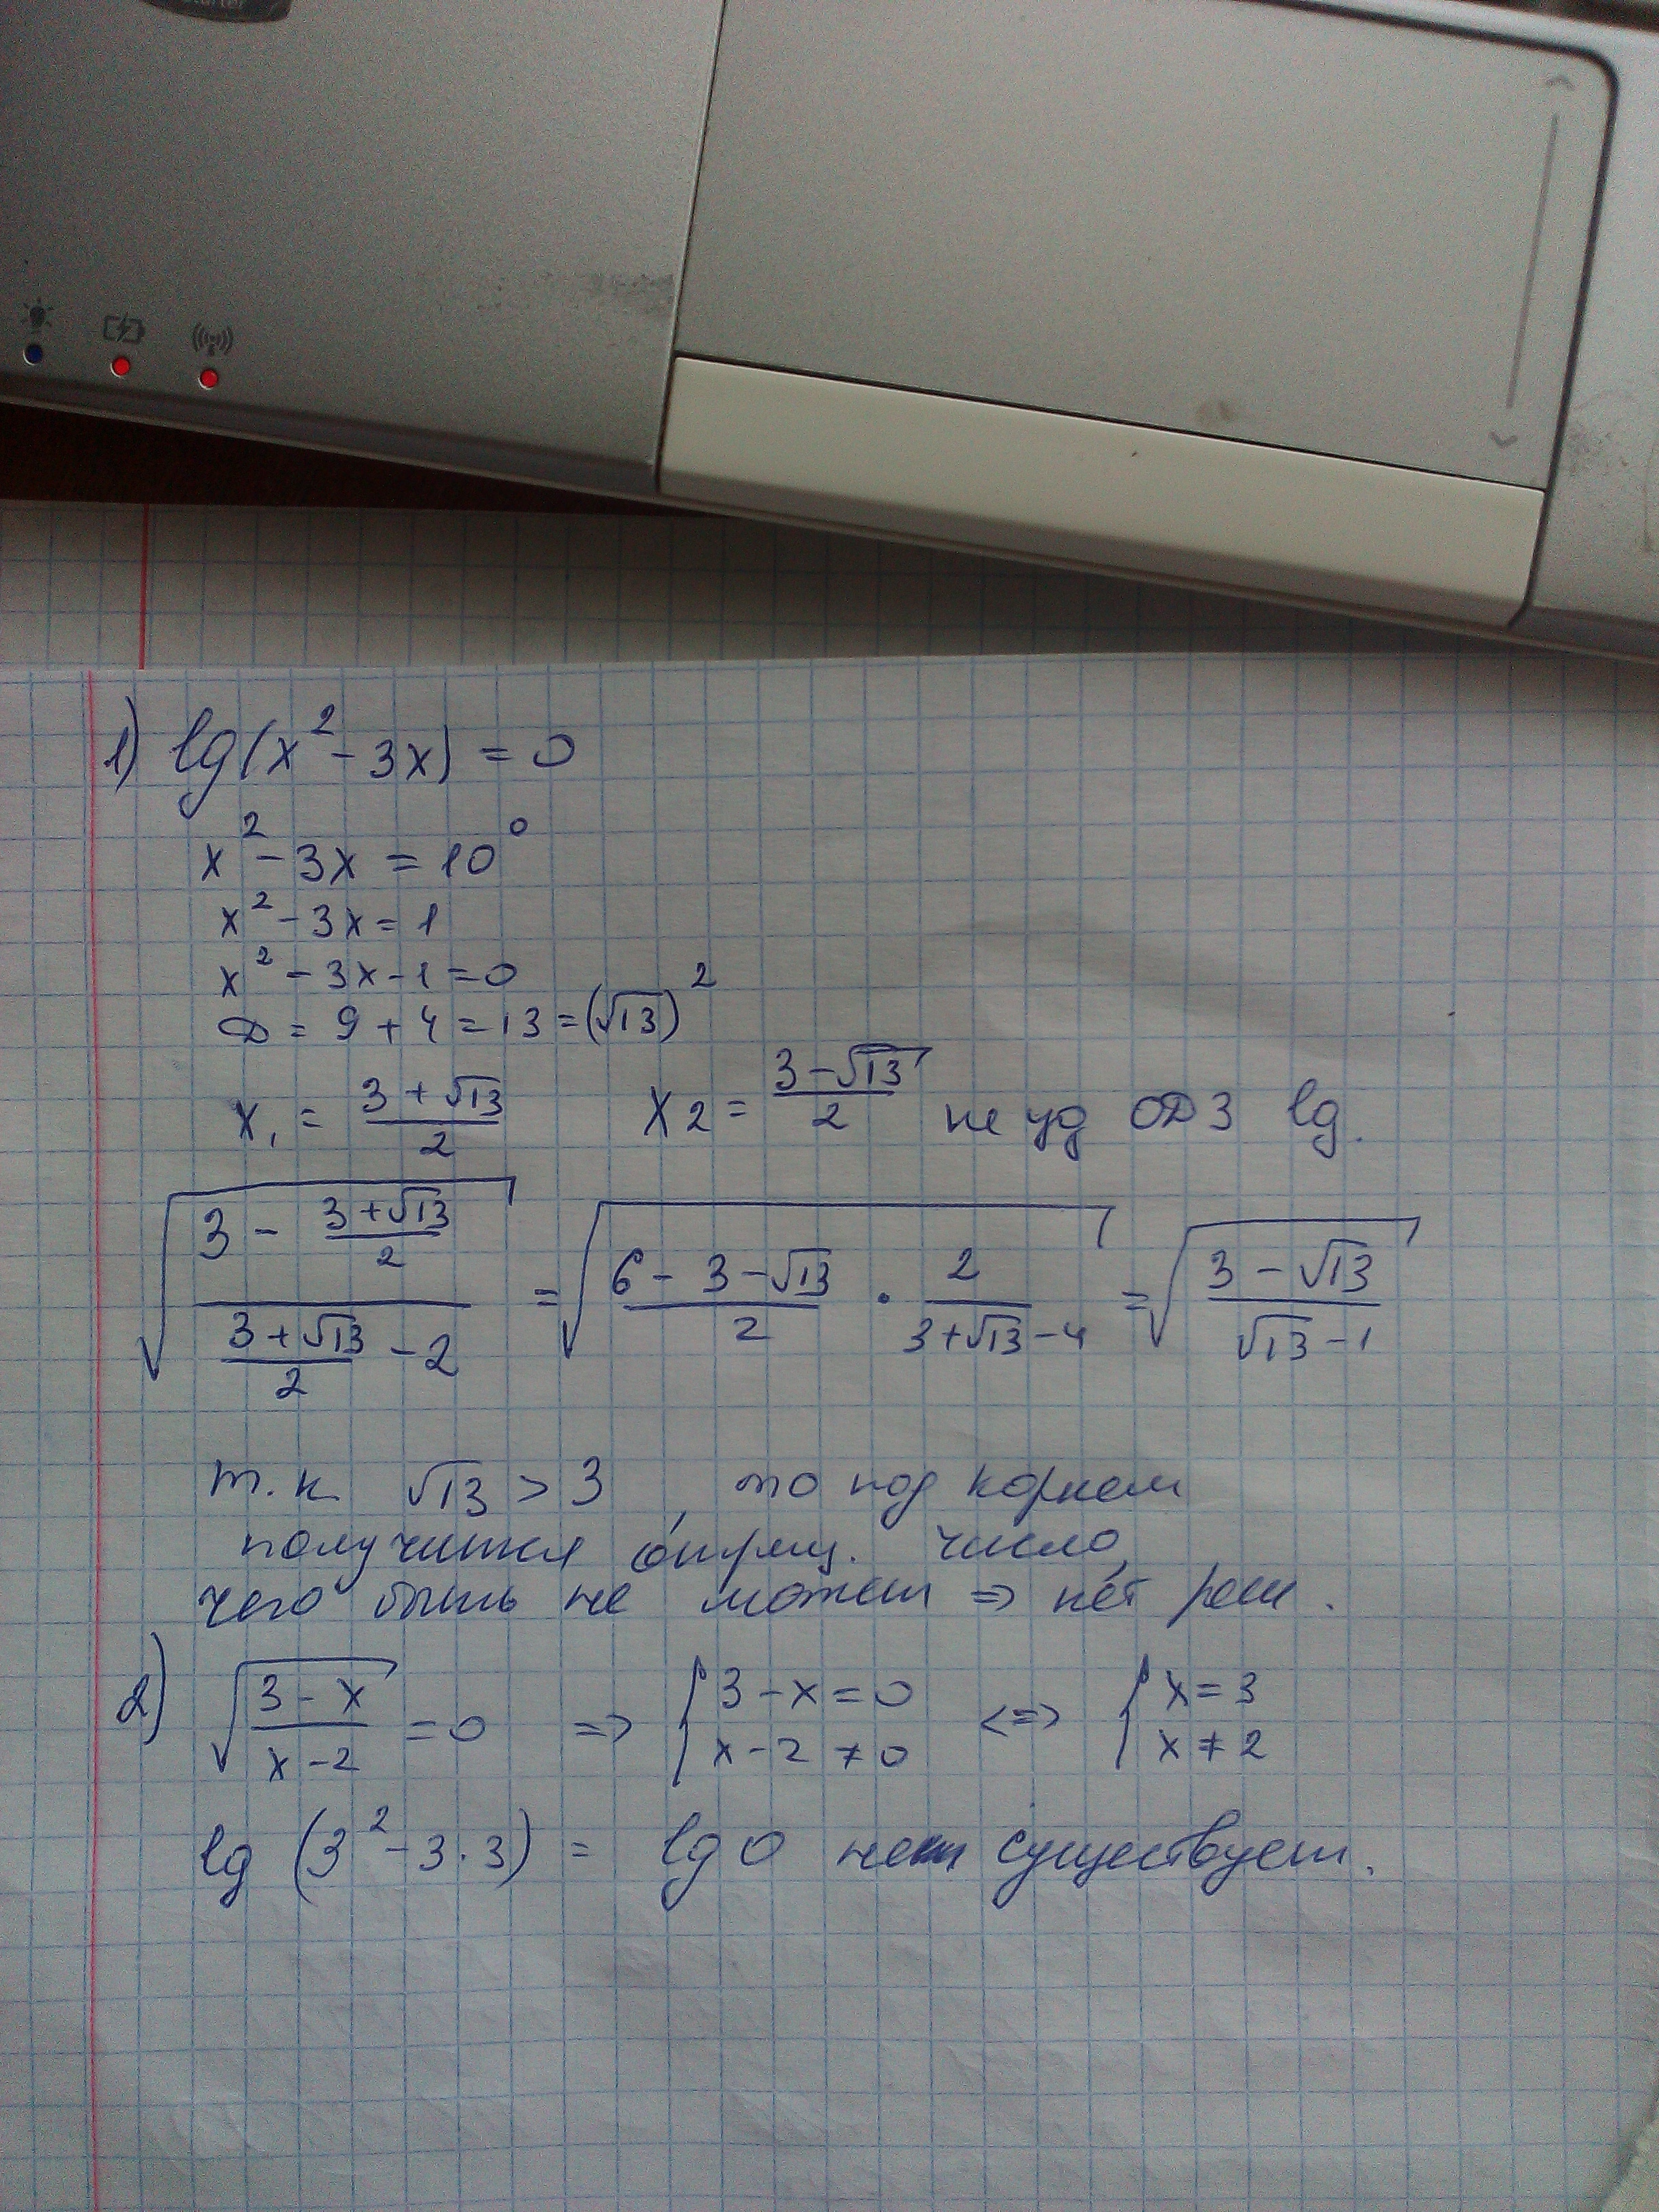 1) lg(x² - 3x) = 0
x² - 3x = 10⁰
x² - 3x = 1
x² - 3x - 1 = 0
D = 9 + 4 = 13 = (√13)²
x₁ = (3 + √13)/2   x₂ = (3 - √13)/2 не уд ОДЗ lg.
√((3 - (3 + √13)/2)/((3 + √13)/2 - 2)) = √((6 - 3 - √13)/2 · 2/(3 + √13 - 4)) = √((3 - √13)/(√13 - 1))
т.к √13 > 3, то под корнем
получится отриц. число,
чего быть не может => нет реш.
2) √((3 - x)/(x - 2)) = 0 => { 3 - x = 0 x - 2 ≠ 0 <=> { x = 3 x ≠ 2
lg (3² - 3·3) = lg 0 существует.